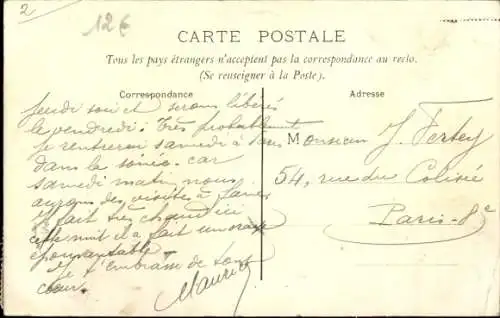 2
12€
CARTE POSTALE
Tous les pays étrangers n'acceptent pas la correspondance au recto.
(Se renseigner à la Poste).
Correspondance
Adresse
jeudi soir et serons libérés
le vendredi. Très probablement
je rentrerai samedi à
dans la soirée. car
samedi matin nous
aurons des visites à faire
Il fait très chaud ici
cette nuit il a fait un orage
épouvantable
Je t'embrasse de tout
cœur.
Maurice
Monsieur J. Fertey
54, rue du Colisée
Paris-8e